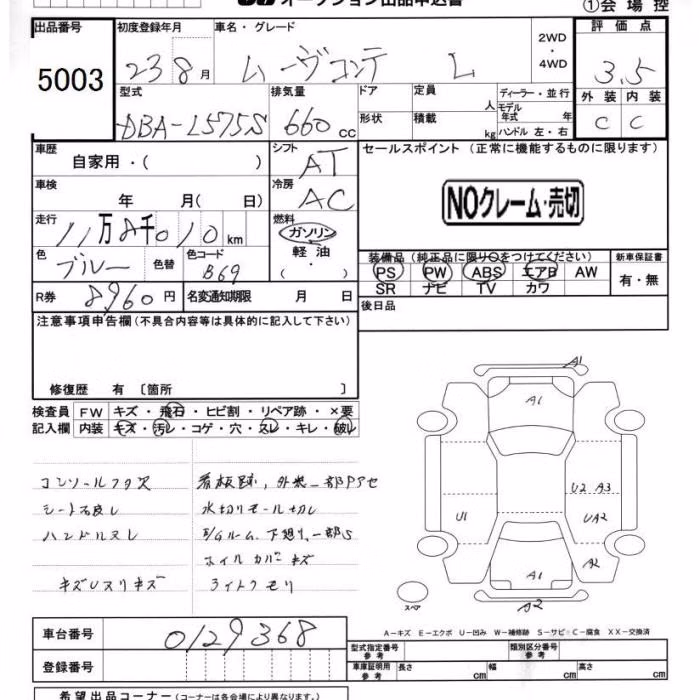 オークション出品申込書
①会場控
出品番号
5003
初度登録年月
23 8月
車名・グレード
ムーヴコンテ L
2WD・4WD
評価点
3.5
外装 内装
C C
型式
DBA-L575S
排気量
660 cc
ドア
形状
定員
人
積載
kg
ディーラー・並行
モデル年式 年
ハンドル 左・右
車歴
自家用・( )
シフト
AT
車検
年 月( 日)
冷房
AC
走行
11万8千010km
燃料
ガソリン・軽油・( )
色
ブルー
色替
色コード
B69
R券
8960円
名変通知期限 月 日
セールスポイント (正常に機能するものに限ります)
NOクレーム・売切
装備品(純正品に限り○をつけてください)
PS PW ABS エアB AW
SR ナビ TV カワ
新車保証書
有・無
後日品
注意事項申告欄(不具合内容等は具体的に記入して下さい)
修復歴 有 〔箇所 〕
検査員記入欄
FW キズ・飛石・ヒビ割・リペア跡・×要
内装 キズ・汚レ・コゲ・穴・スレ・キレ・破レ
コンソールフタ穴
シート汚し
ハンドルスレ
キズUスリキズ
看板跡,外装一部Pアセ
水切りモール切レ
E/Gルーム.下廻り.一部S
ホイルカバーキズ
ライトクモリ
A1
A1
U2 A3
U1
UA2
A2
A1
A2
スペア
A-キズ E-エクボ U-凹み W-補修跡 S-サビ C-腐食 XX-交換済
車台番号
0129368
登録番号
型式指定番号 参考
類別区分番号 参考
車庫証明用 参考
長さ cm
幅 cm
高さ cm
希望出品コーナー(コーナーは各会場により異なります。)